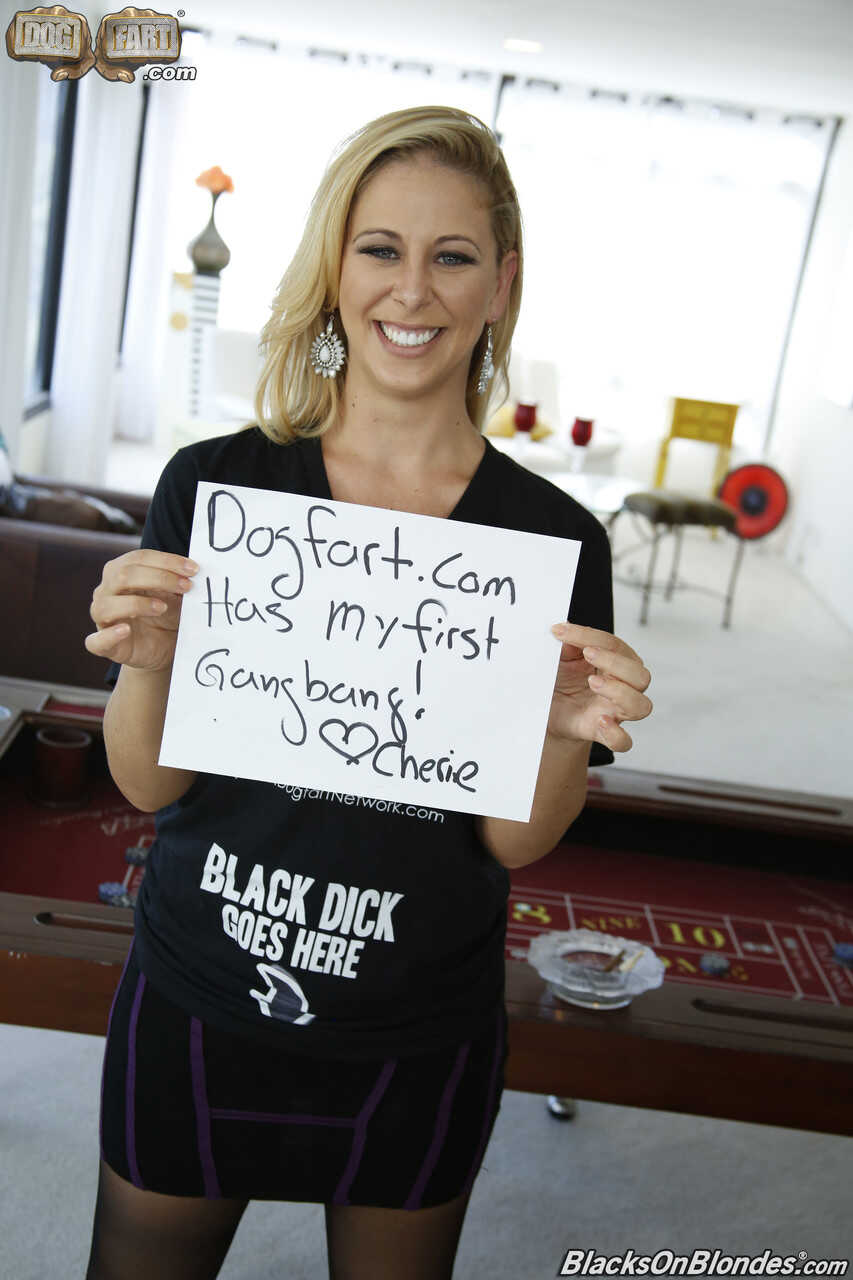 DOG FART
.com
Dogfart.com
Has my first
Gangbang!
♡ Cherie
DogfartNetwork.com
BLACK DICK
GOES HERE
NINE 10
BlacksOnBlondes.com